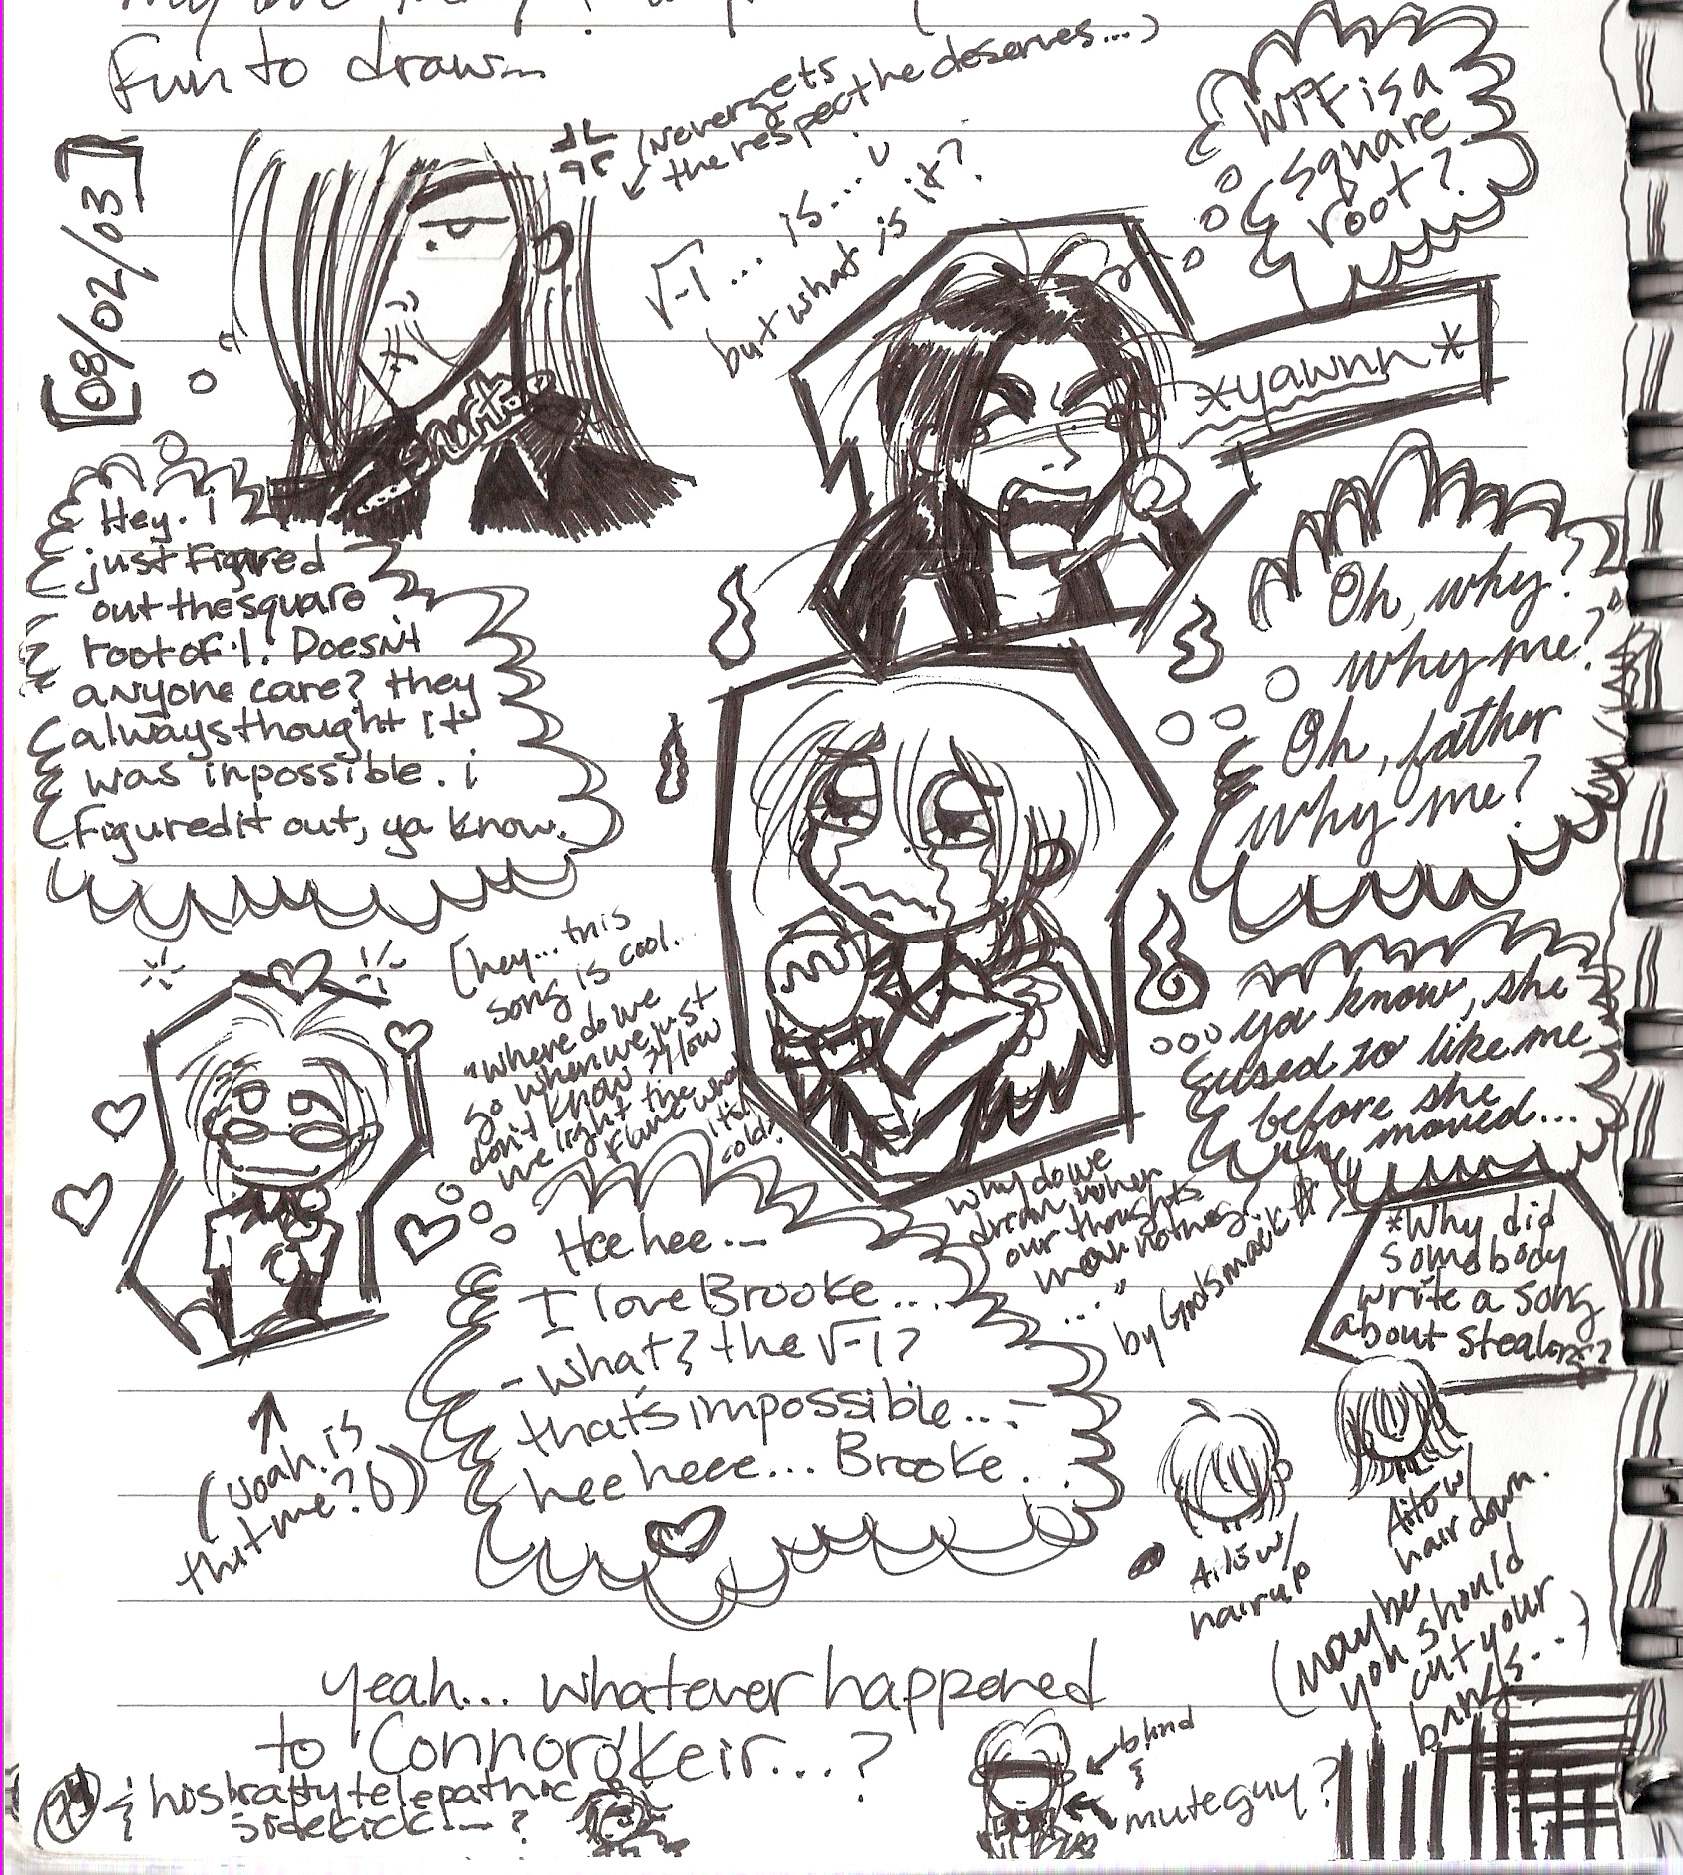 Fun to draw...
[08/02/03]
(Never gets
the respect he deserves...)
√-1... is...
but what is it?
WTF is a
square
root?
*yawnn*
Hey. i
just figured
out the square
root of -1. Doesn't
anyone care? they
always thought it
was inpossible. i
figured it out, ya know.
Oh, why?
why me?
Oh, father
why me?
ya know, she
used to like me
before she
moved...
[hey... this
song is cool...
"where do we
go when we just
don't know? How
we light the
flame when
it's
cold?
why do we
dream when
our thoughts
mean nothing?
..."
by Godsmack
*Why did
somebody
write a song
about
Hee hee...
I love Brooke...
-what? the √-1?
that's impossible...-
hee heee... Brooke...
(woah. is
that me?
w/
hair up
w/
hair down.
(maybe
you should
cut your
bangs...)
yeah... whatever happened
to Connor O'Keir...?
& his bratty telepathic
sidekick...?
blind
&
mute guy?
74